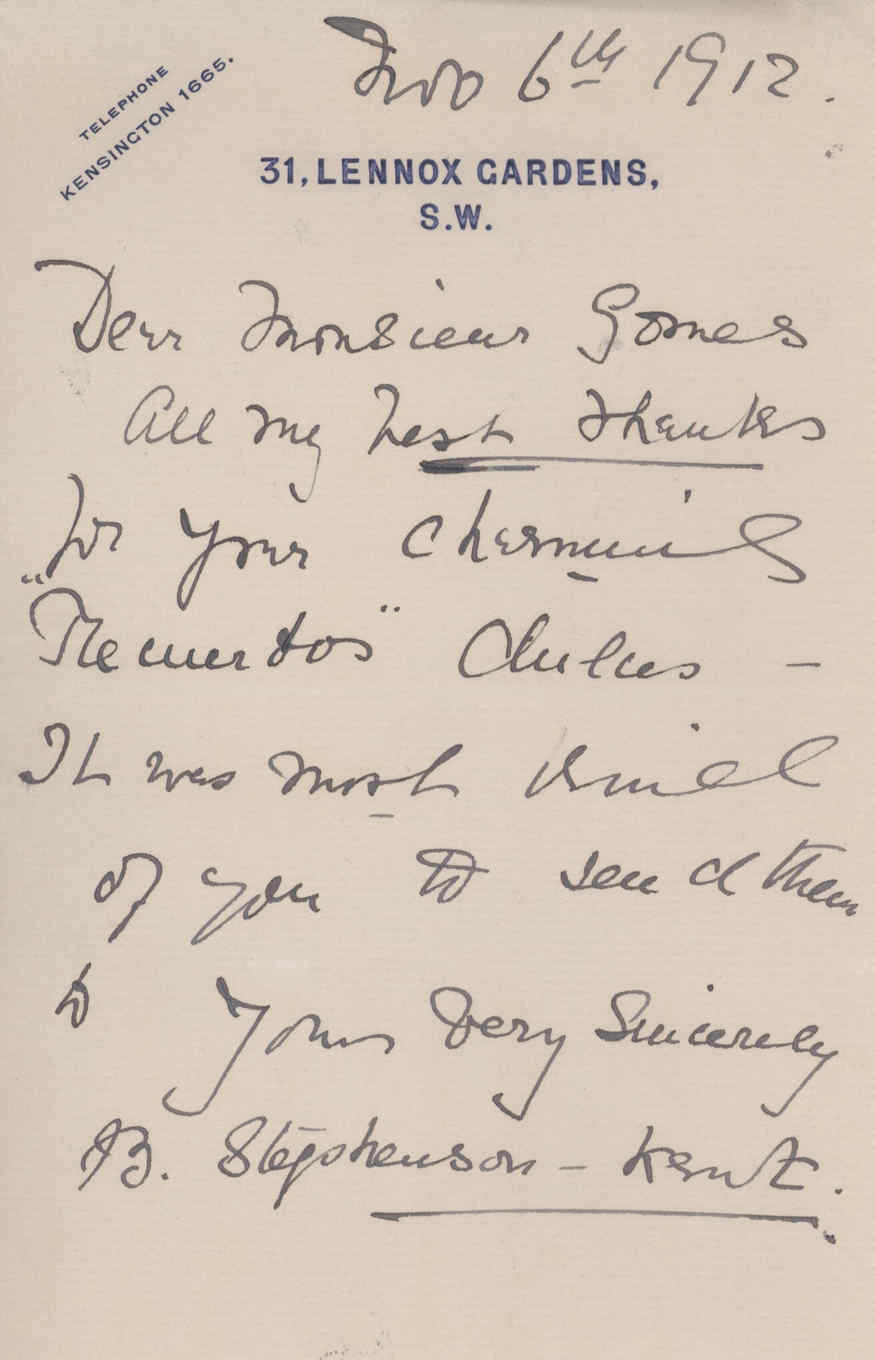 Nov 6th 1912.
TELEPHONE
KENSINGTON 1665.
31, LENNOX GARDENS,
S.W.
Dear Monsieur Gomes
All my best thanks
for your charming
„Recuerdos" –
It was most kind
of you to send them
to Yours Very Sincerely
B. Stephenson – Kent.